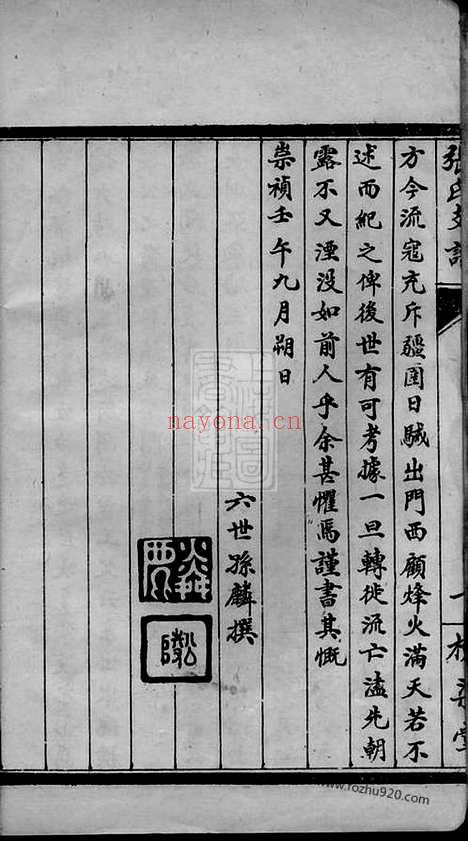 張氏支譜
方今流寇充斥疆圉日蹙出門西顧烽火滿天若不
述而紀之俾後世有可考據一旦轉徙流亡溘先朝
露不又湮没如前人乎余甚懼焉謹書其慨
崇禎壬午九月朔日
六世孫麟撰
nayona.cn
www.rozhu920.com